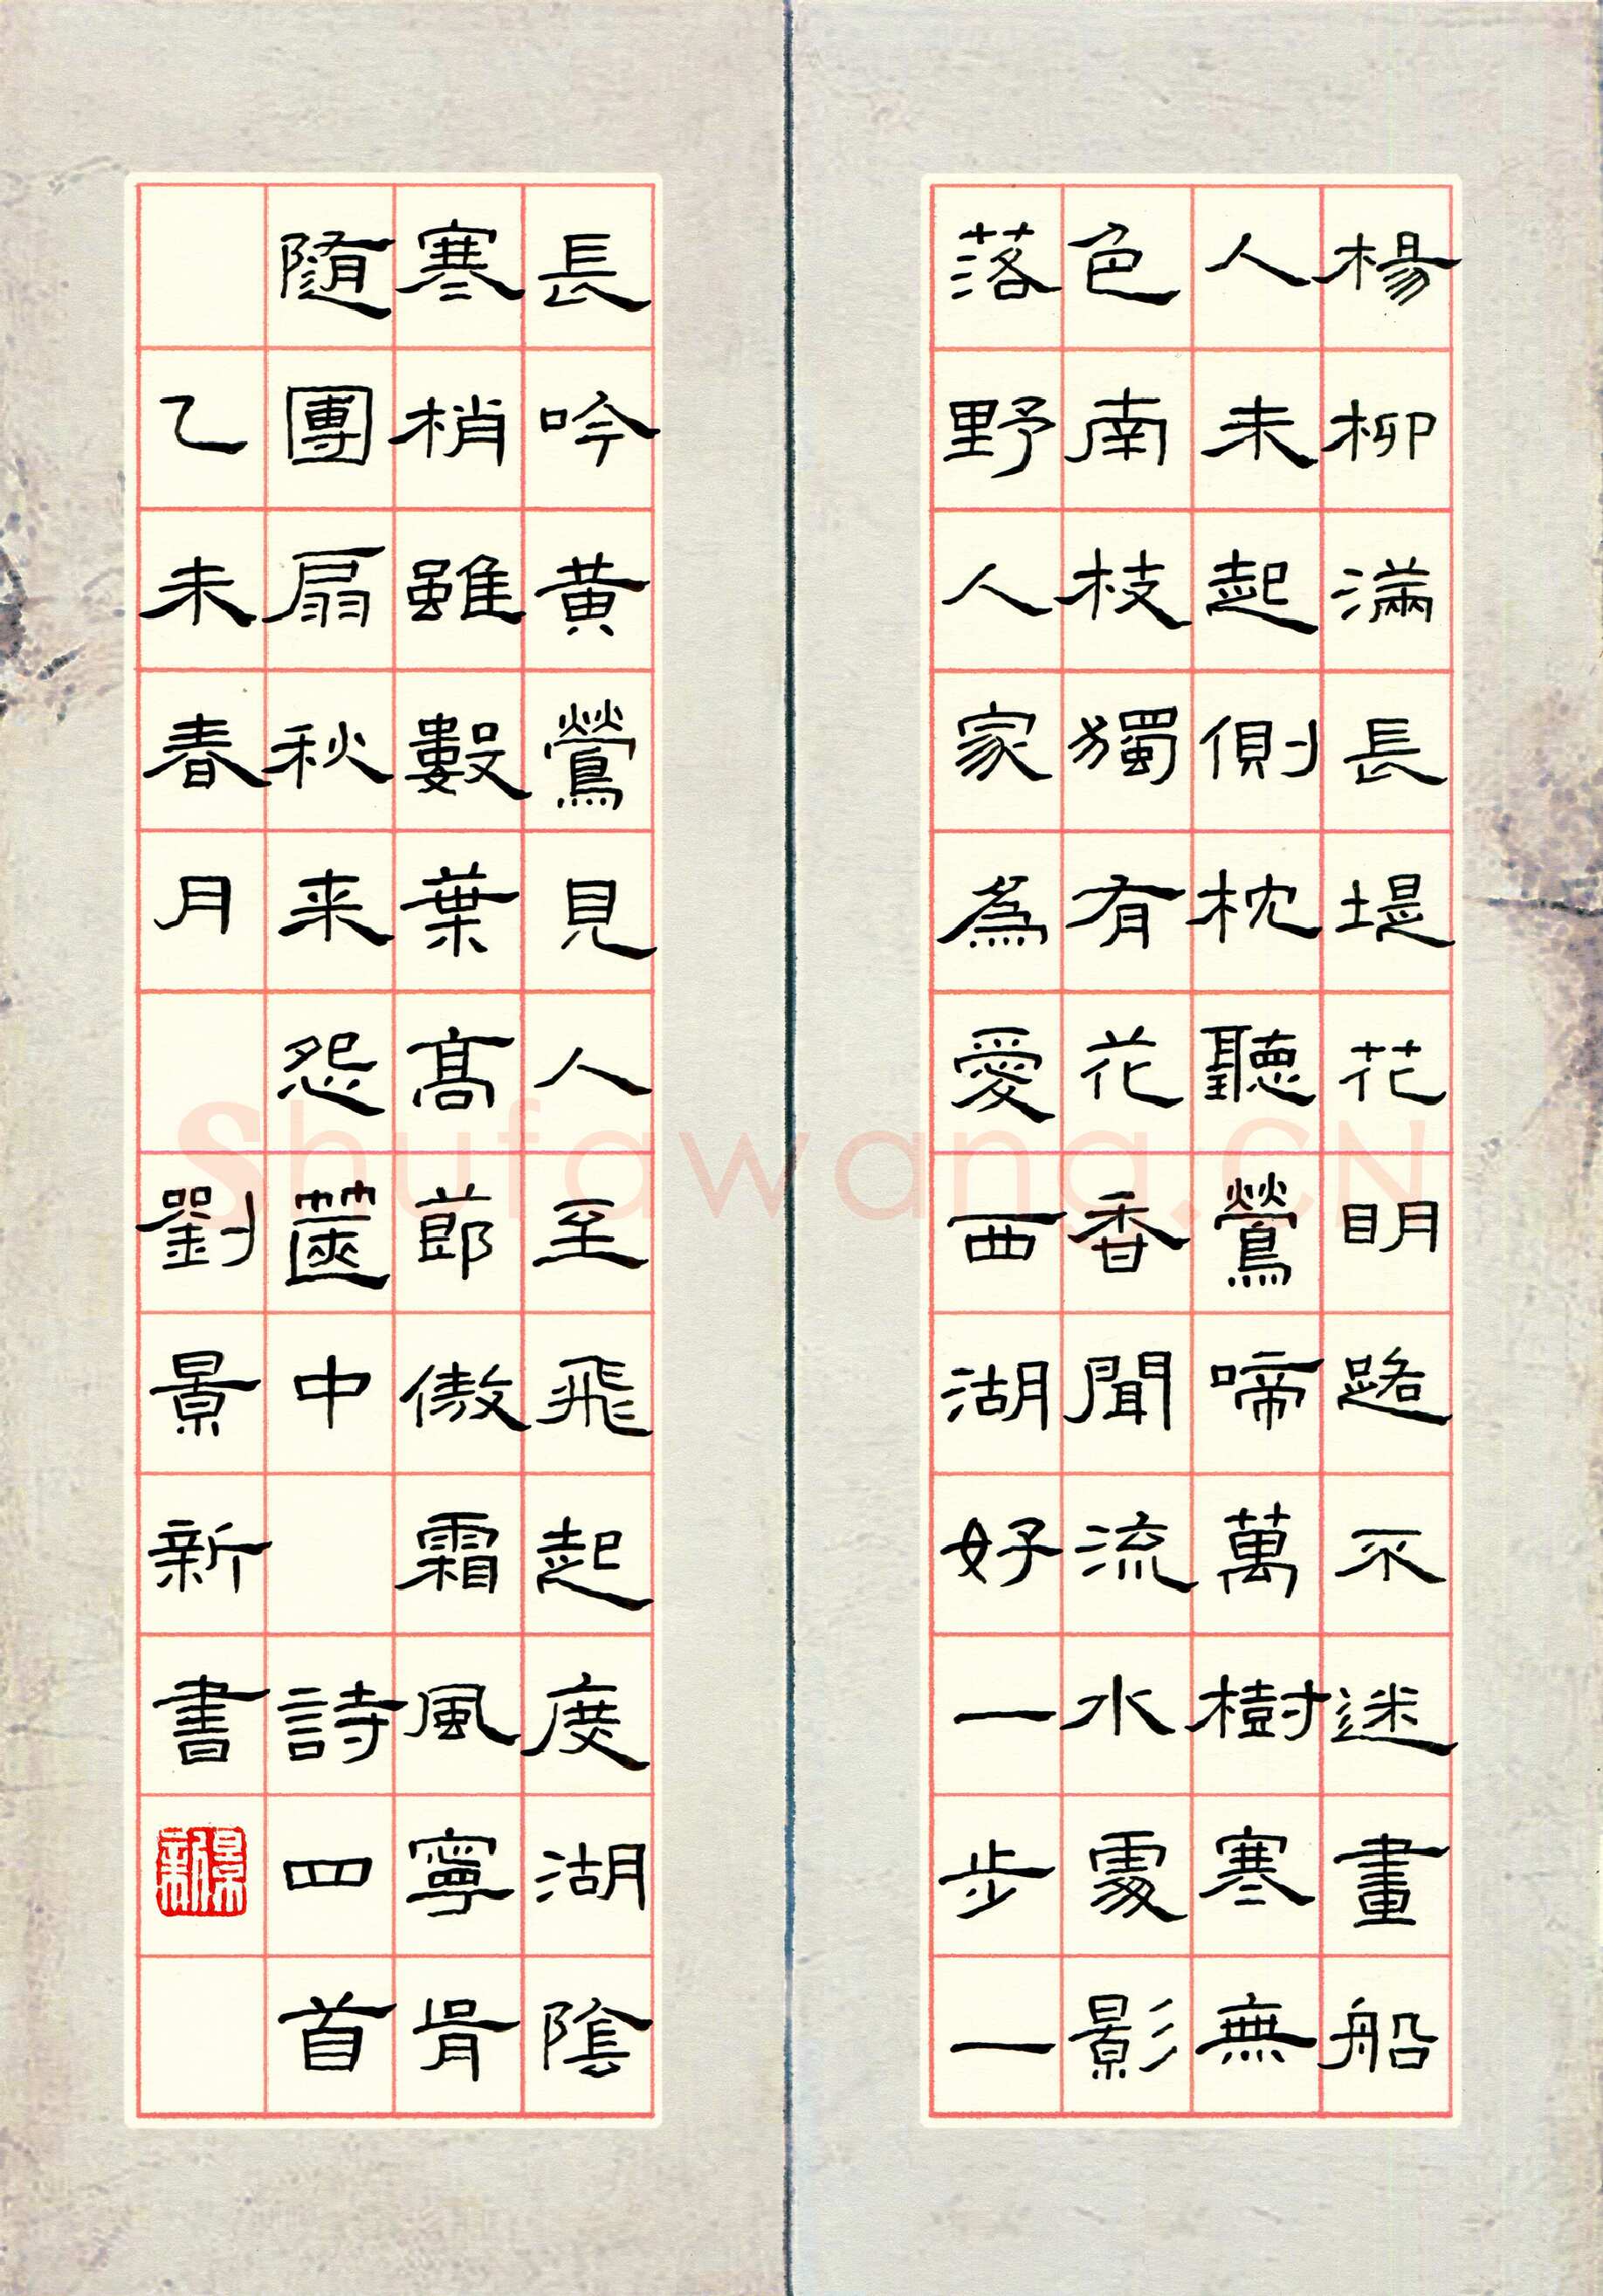 楊柳滿長堤花明路不迷畫船
人未起側枕聽鶯啼萬樹寒無
色南枝獨有花香聞流水處影
落野人家為愛西湖好一步一
長吟黃鶯見人至飛起度湖陰
寒梢雖數葉高節傲霜風寧肯
隨團扇秋来怨篋中 詩四首
乙未春月 劉景新書
景新
Shufawang.CN